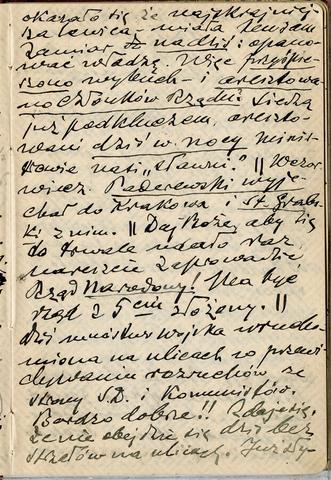 okazało się że najskrajniej-
sza lewica miała
zamiar na dziś: opano-
wać władzę. Więc przyśpie-
szono wybuch – i aresztowa-
no członków Rządu! Siedzą
już pod kluczem, areszto-
wani dziś w nocy mini-
strowie nasi „sławni." ||
Paderewski wyje-
chał do Krakowa i St. Grab-
ski z nim. || Daj Boże, aby się
to trwale udało raz
nareszcie zaprowadzić
Rząd Narodowy! Ma być
rząd z 5ciu złożony. ||
Dziś wojska
na ulicach w przewi-
dywaniu rozruchów ze
strony S.D. i Komunistów.
Bardzo dobrze!! Zdaje się,
że nie obejdzie się dziś bez
strzałów na ulicach. Już